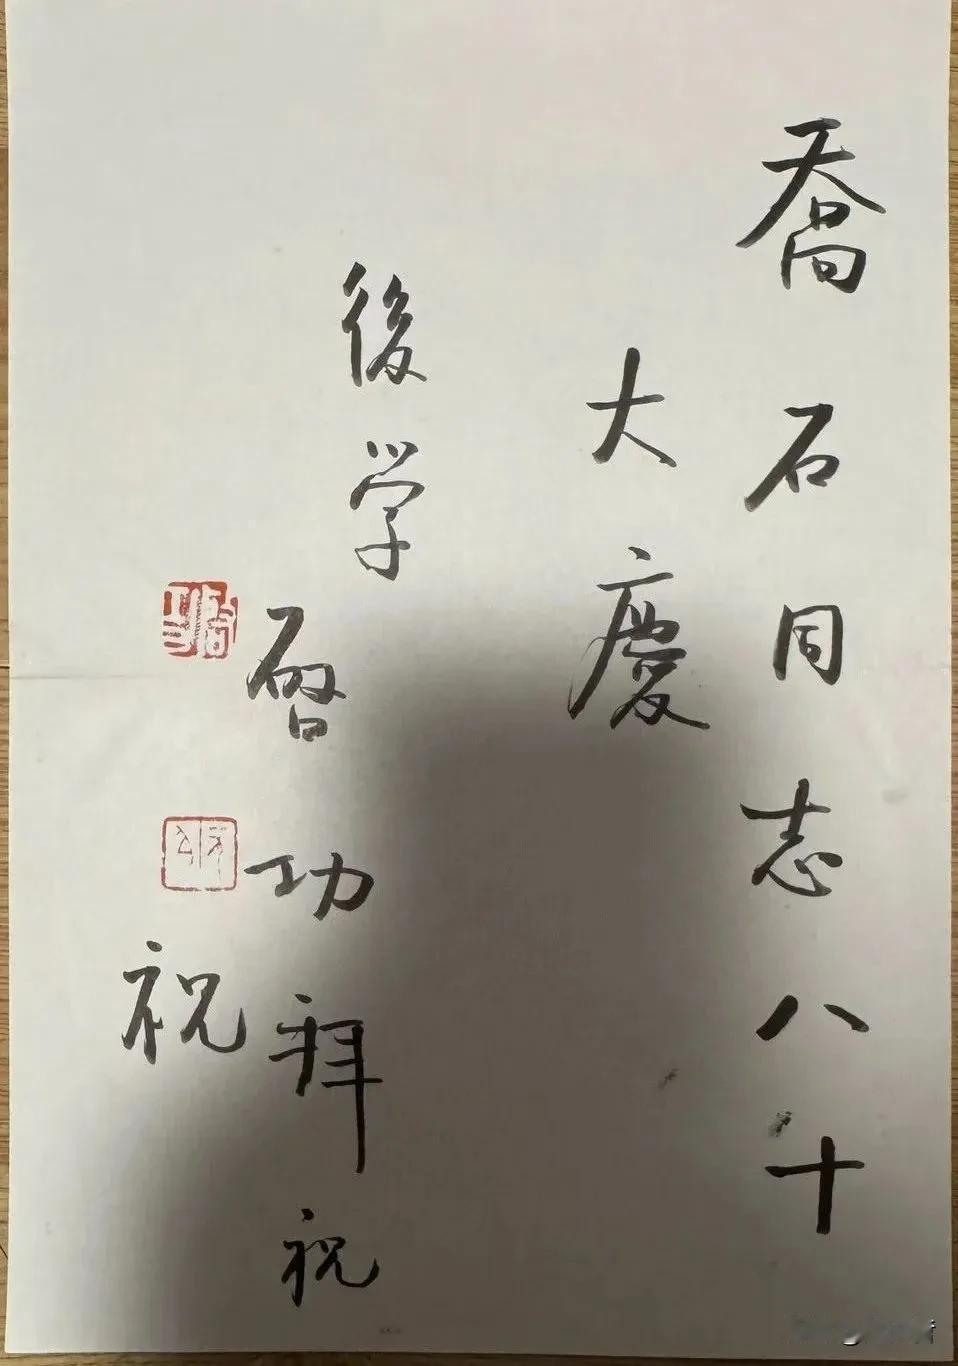 喬石同志八十
大慶
後学
啓功拜祝
祝